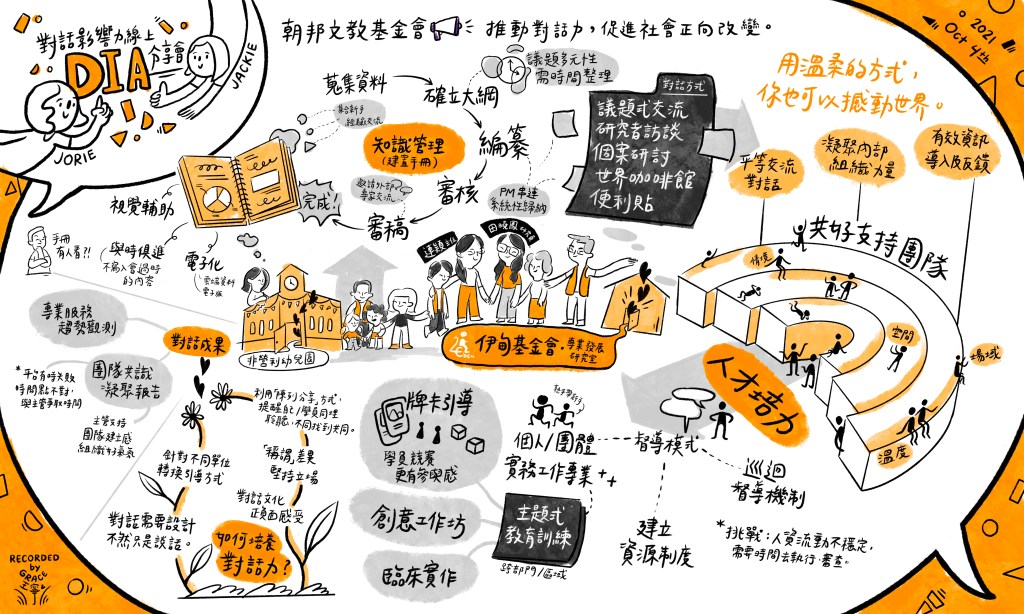 對話影響力線上
分享會
DIA
JORIE
JACKIE
朝邦文教基金會
推動對話力，促進社會正向改變。
2021
Oct 4th
用溫柔的方式，
你也可以撼動世界。
蒐集資料
確立大綱
議題多元性
需時間整理
編纂
PM串連
系統性歸納
審核
審稿
邀請外部
專家交流
完成！
知識管理
(建置手冊)
對話方式
議題式交流
研究者訪談
個案研討
世界咖啡館
便利貼
視覺輔助
手冊
有人看?!
(與時俱進
不寫入會過時
的內容
電子化
電子版
平等交流
對話
凝聚內部
組織力量
有效資訊
導入及反饋
共好支持團隊
情境
空間
場域
溫度
非營利幼兒園
伊甸基金會 專業發展
研究室
專業服務
趨勢觀測
對話成果
團隊共識
凝聚報告
*平台有時失敗
時間點不對，
與主管爭取時間
主管支持
團隊建立感
組織好氣氛
針對不同單位
轉換引導方式
對話需要設計
不然只是談話。
利用「陣列分享」方式，
提醒自己/學員同理
聆聽，不同找到共同。
「稱謂」差異
堅持立場
對話文化
正面感受
如何培養
對話力？
牌卡引導
學員競賽
更有參與感
創意工作坊
臨床實作
個人/團體
實務工作專業++
主題式
教育訓練
跨部門/區域
人才培力
督導模式
督導機制
建立
資源制度
*挑戰：人資流動不穩定，
需要時間去執行、審查。
RECORDED
by
GRACE